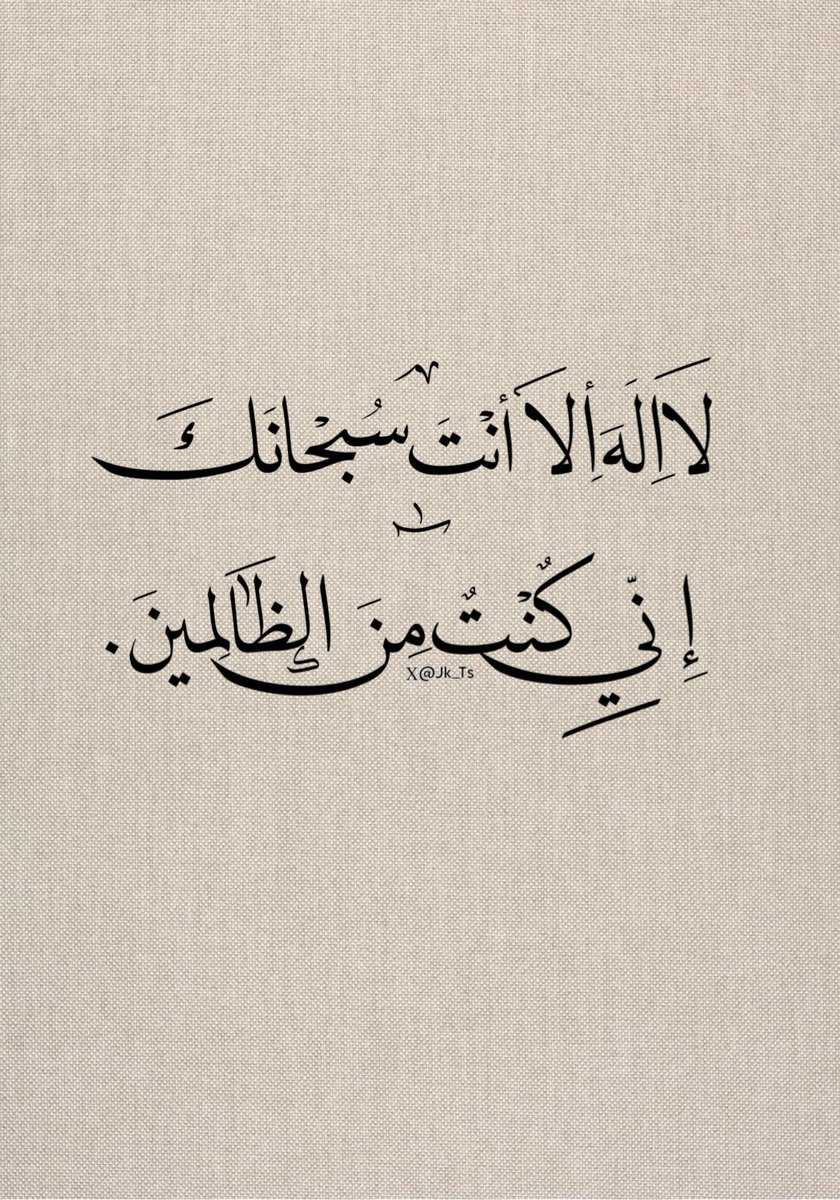 لَا اِلَهَ أِلَا أنْتَ سُبْحانَكَ
إِ نّيِ كُنْتُ مِنَ الظَالِمينَ.
X@Jk_Ts